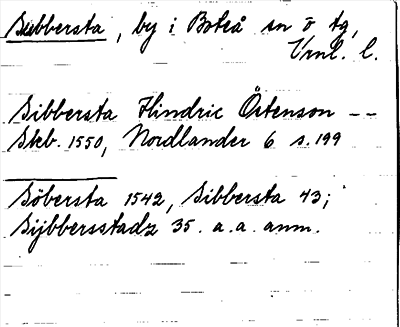 Subbersta, by i Boteå sn ö tg,
Vrnl. l.
Sibbersta Hindric Östenson --
Skb. 1550, Nordlander 6 s. 199
Söbersta 1542, Sibbersta 43;
Sijbbersstadz 35. a. a. anm.